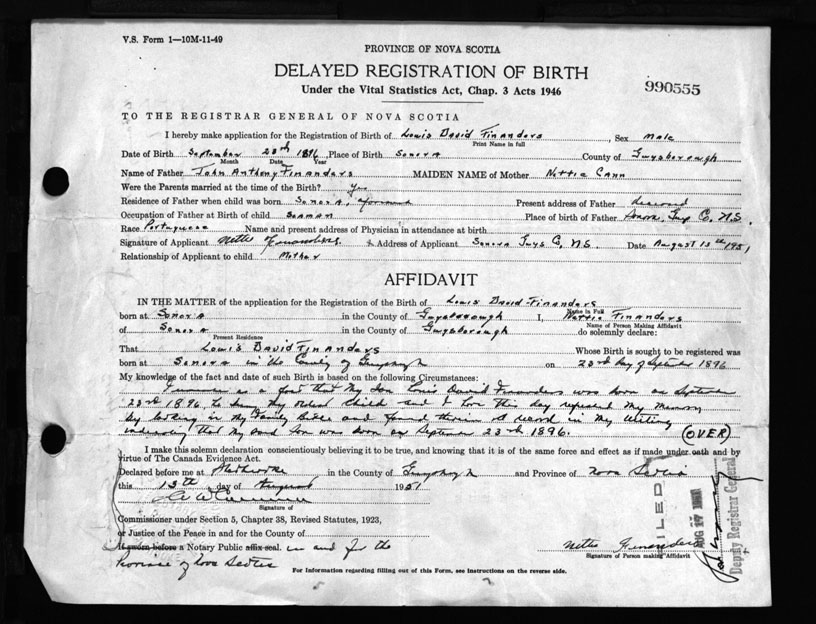 V.S. Form 1—10M-11-49
PROVINCE OF NOVA SCOTIA
DELAYED REGISTRATION OF BIRTH
Under the Vital Statistics Act, Chap. 3 Acts 1946
990555
TO THE REGISTRAR GENERAL OF NOVA SCOTIA
I hereby make application for the Registration of Birth of Lewis David Finanders, Sex Male
Print Name in full
Date of Birth September 23rd 1896 Place of Birth Sonora County of Guysborough
Month Date Year
Name of Father John Anthony Finanders MAIDEN NAME of Mother Nettie Cann
Were the Parents married at the time of the Birth? Yes
Residence of Father when child was born Sonora, Present address of Father deceased
Occupation of Father at Birth of child Seaman Place of birth of Father Sonora, Guy Co, N.S.
Race Portuguese Name and present address of Physician in attendance at birth
Signature of Applicant Nettie Address of Applicant Sonora Guys Co, N.S Date August 13th 1951
Relationship of Applicant to child Mother
AFFIDAVIT
IN THE MATTER of the application for the Registration of the Birth of Lewis David Finanders
Name in Full
born at Sonora in the County of Guysborough I, Nettie Finanders
Name of Person Making Affidavit
of Sonora in the County of Guysborough do solemnly declare:
Present Residence
That Lewis David Finanders Whose Birth is sought to be registered was
born at Sonora in the County of Guysboro on 23rd day of September 1896
My knowledge of the fact and date of such Birth is based on the following Circumstances:
as a fact that My Son Lewis David Finanders was born on September
23rd 1896, he being My oldest Child and I have this day refreshed My Memory
by looking in My Family Bible and found therein a record in My Writing
indicating that My said Son was born on September 23rd 1896. (OVER)
I make this solemn declaration conscientiously believing it to be true, and knowing that it is of the same force and effect as if made under oath and by
virtue of The Canada Evidence Act.
Declared before me at Sherbrooke in the County of Guysboro and Province of Nova Scotia
this 13th day of August 1951
Signature of
Commissioner under Section 5, Chapter 38, Revised Statutes, 1923,
or Justice of the Peace in and for the County of
If sworn before a Notary Public affix seal. in and for the
Province of Nova Scotia
Nettie Finanders
Signature of Person making Affidavit
For Information regarding filling out of this Form, see Instructions on the reverse side.
FILED
AUG 17 1951
Deputy Registrar General